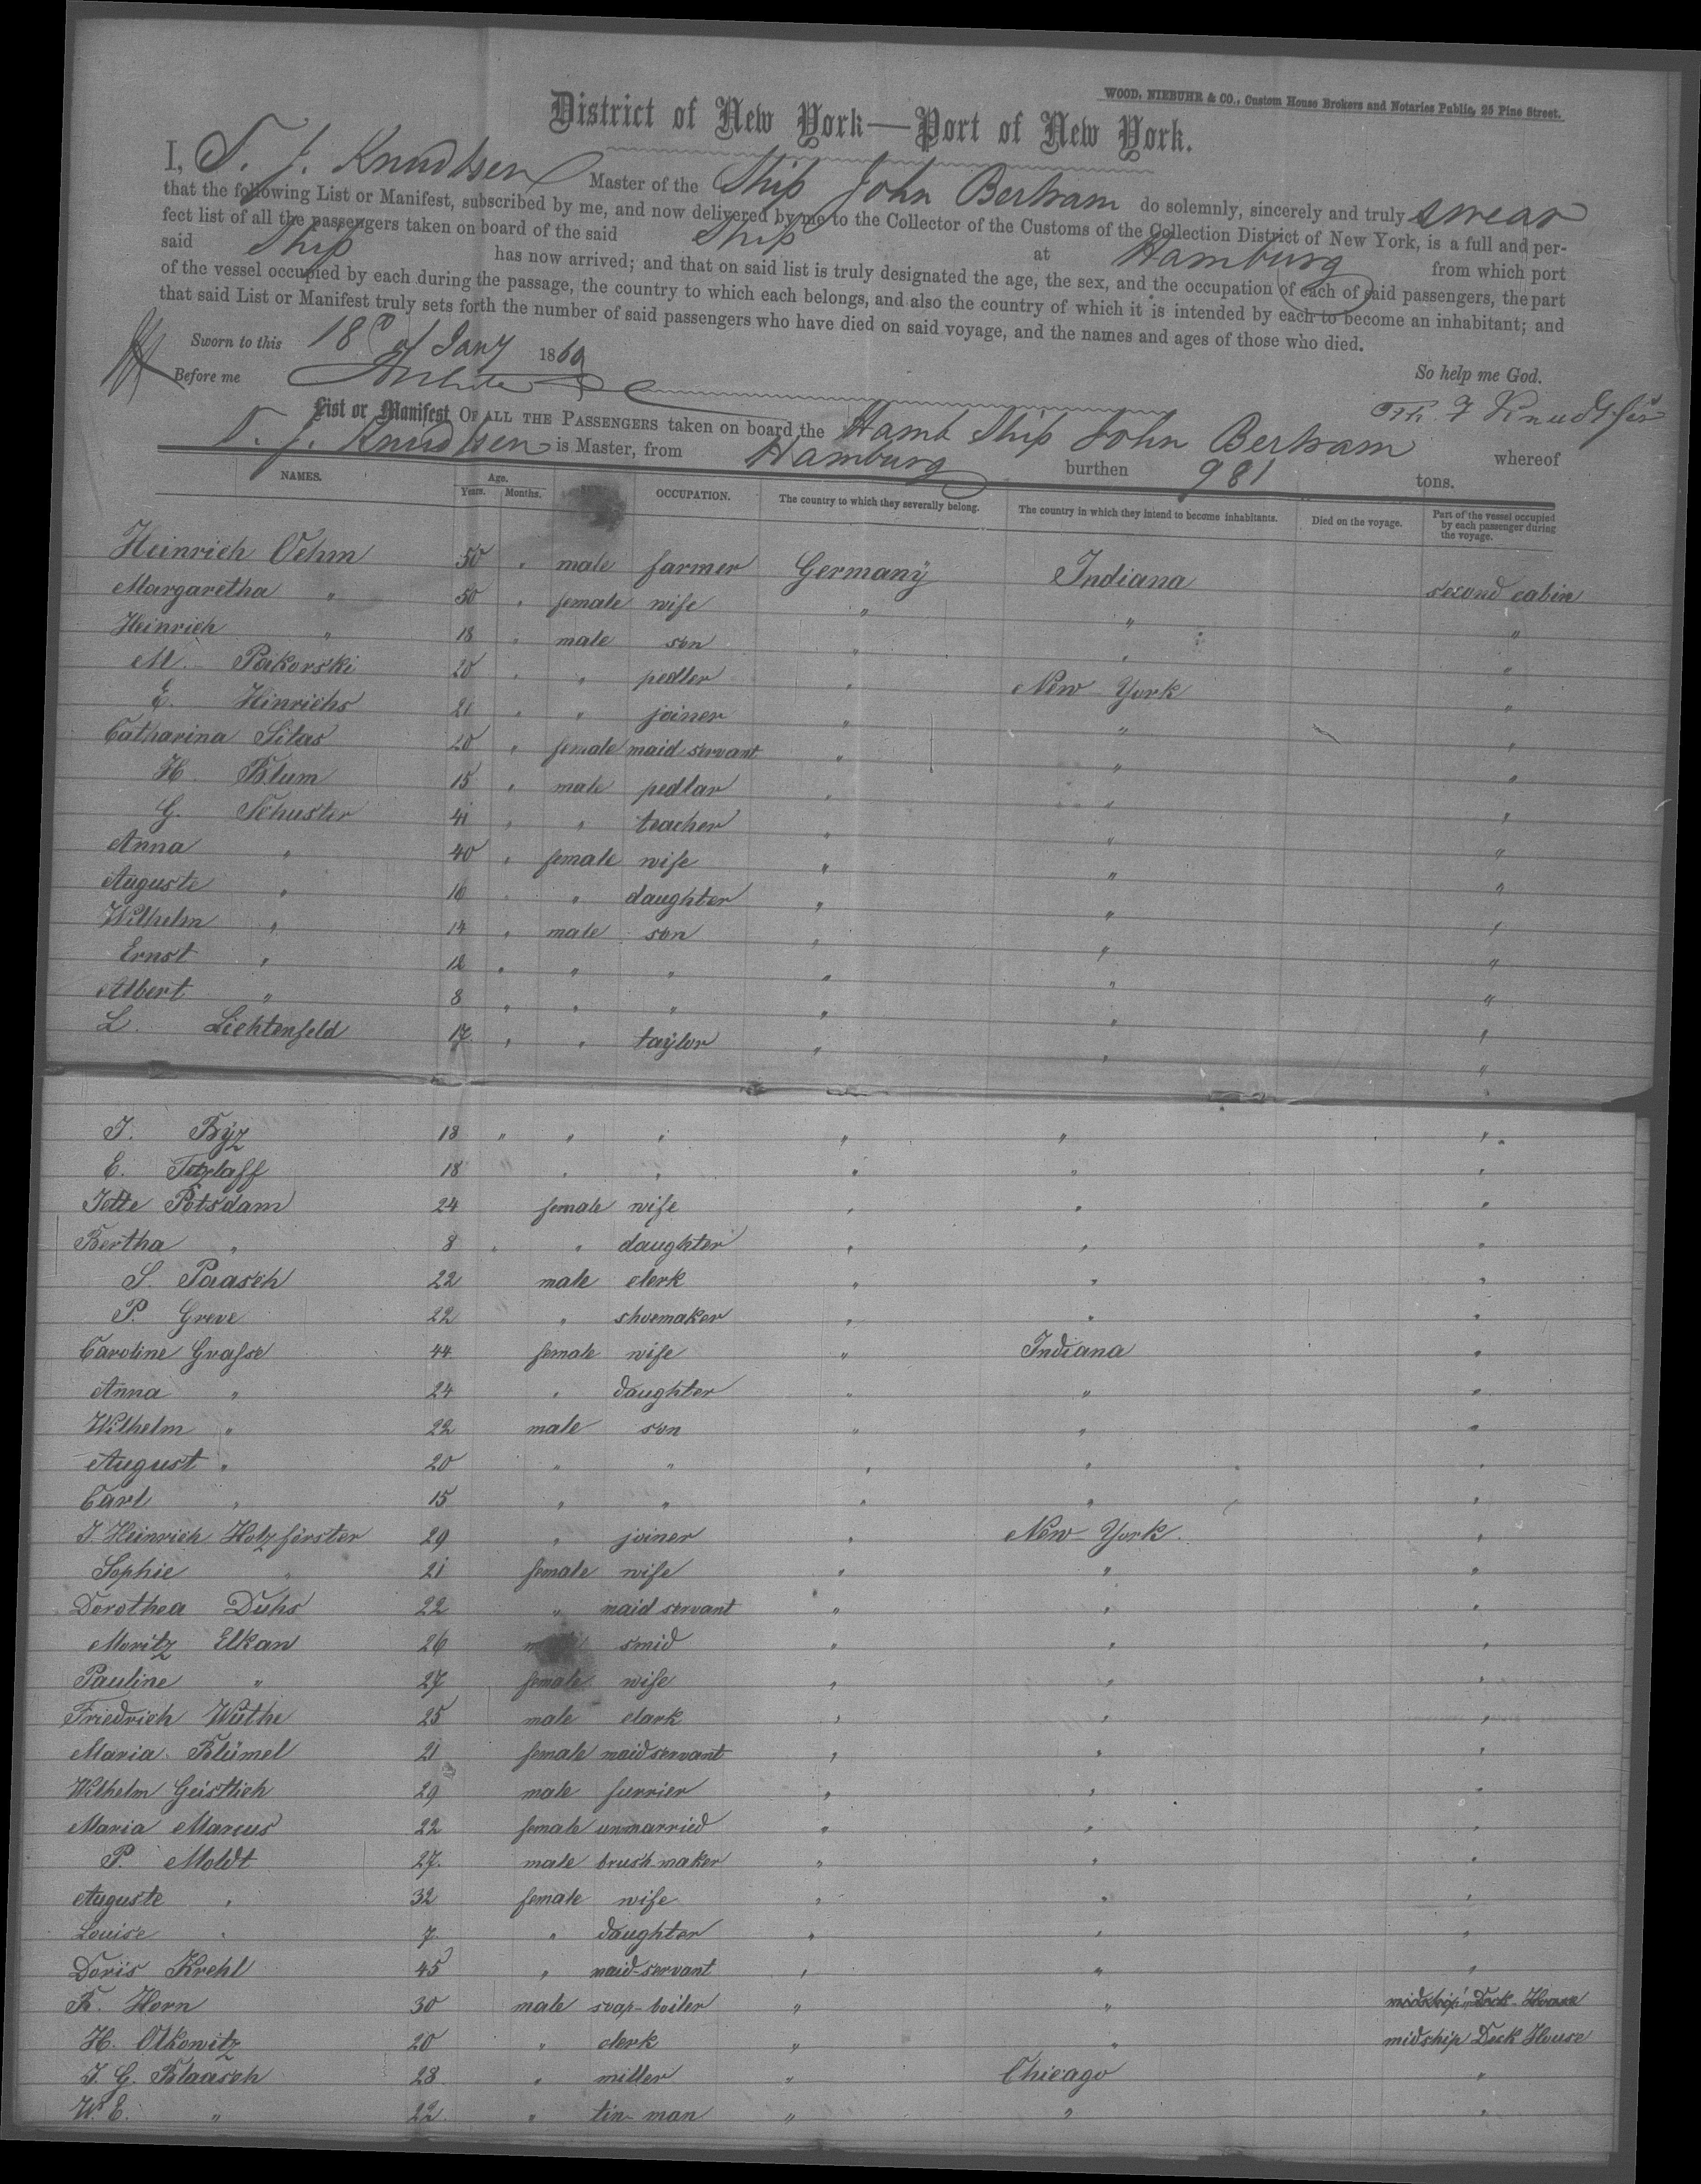 WOOD, NIEBUHR & CO., Custom House Brokers and Notaries Public, 25 Pine Street.
District of New York—Port of New York.
I, T. J. Knudtsen Master of the Ship John Bertram do solemnly, sincerely and truly swear
that the following List or Manifest, subscribed by me, and now delivered by me to the Collector of the Customs of the Collection District of New York, is a full and per-
fect list of all the passengers taken on board of the said Ship at Hamburg from which port
said Ship has now arrived; and that on said list is truly designated the age, the sex, and the occupation of each of said passengers, the part
of the vessel occupied by each during the passage, the country to which each belongs, and also the country of which it is intended by each to become an inhabitant; and
that said List or Manifest truly sets forth the number of said passengers who have died on said voyage, and the names and ages of those who died.
Sworn to this 18 of Jany 1860
So help me God.
Before me
Th. J Knudtsen
List or Manifest OF ALL THE PASSENGERS taken on board the Hamb Ship John Bertram whereof
T. J. Knudtsen is Master, from Hamburg burthen 981 tons.
NAMES. Age. Years. Months. OCCUPATION. The country to which they severally belong. The country in which they intend to become inhabitants. Died on the voyage. Part of the vessel occupied by each passenger during the voyage.
Heinrich Oehm 50 " male farmer Germany Indiana second cabin
Margaretha " 50 " female wife " " "
Heinrich " 18 " male son " " "
M. Pakorski 20 " " pedler " New York "
E. Hinrichs 21 " " joiner " " "
Catharina Silas 20 " female maid servant " " "
H. Blum 15 " male pedlar " " "
G. Schuster 41 " " teacher " " "
Anna " 40 " female wife " " "
Auguste " 16 " " daughter " " "
Wilhelm " 14 " male son " " "
Ernst " 12 " " " " " "
Albert " 8 " " " " " "
L. Lichtenfeld 17 " " taylor " " "
J. Byz 18 " " " " " "
E. Tetzlaff 18 " " " " " "
Jette Potsdam 24 female wife " " "
Bertha " 8 " " daughter " " "
S. Paasch 22 male clerk " " "
P. Greve 22 " shoemaker " " "
Caroline Grasse 44 female wife " Indiana "
Anna " 24 " daughter " " "
Wilhelm " 22 male son " " "
August " 20 " " " " "
Carl " 15 " " " " "
J. Heinrich Holzförster 29 " joiner " New York "
Sophie " 21 female wife " " "
Dorothea Duhs 22 " maid servant " " "
Moritz Elkan 26 male smid " " "
Pauline " 27 female wife " " "
Friedrich Wuthe 25 male clark " " "
Maria Blümel 21 female maid servant " " "
Wilhelm Geistlich 29 male furrier " " "
Maria Marcus 22 female unmarried " " "
P. Moldt 27 male brush maker " " "
Auguste " 32 female wife " " "
Louise " 7 " daughter " " "
Doris Krehl 45 " maid-servant " " "
R. Horn 30 male soap-boiler " " midship Deck House
H. Olkowitz 20 " clerk " " midship Deck House
J. G. Blaasch 28 " miller " Chicago "
W. E. " 22 " tin-man " " "